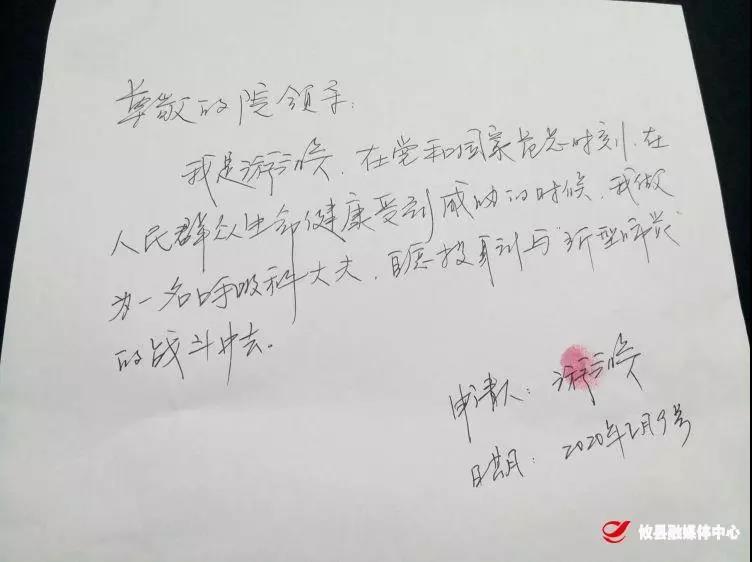 尊敬的院领导:
我是,在党和国家危急时刻,在
人民群众生命健康受到威胁的时候,我做
为一名呼吸科大夫,自愿投身到与"新型肺炎"
的战斗中去。
申请人:
日期:2020年2月9号
攸县融媒体中心